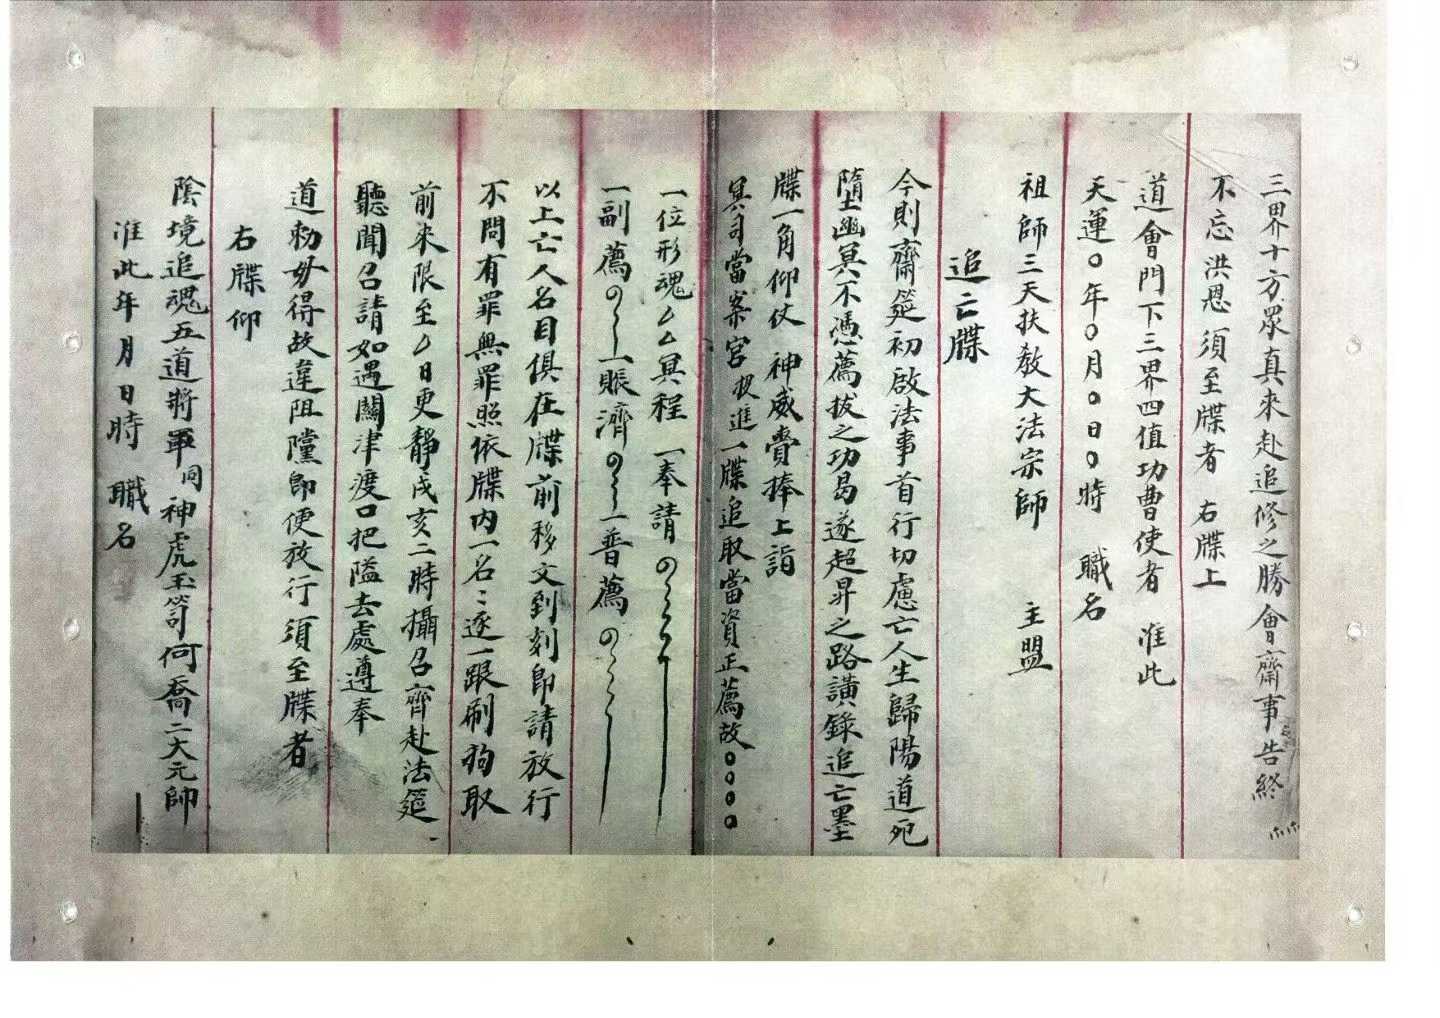 三界十方眾真來赴追修之勝會齋事告終
不忘洪恩須至牒者 右牒上
道會門下三界四值功曹使者 准此
天運〇年〇月〇日〇時 職名
祖師三天扶教大法宗師 主盟
追亡牒
今則齋筵初啟法事首行切慮亡人生歸陽道死
墮幽冥不憑薦拔之功曷遂超昇之路讃錄追亡墨
牒一角仰仗 神威賫捧上詣
冥司當案官投進一牒追取當資正薦故〇〇〇〇
一位形魂厶厶冥程 一奉請
一副薦 一賬濟 一普薦
以上亡人名目俱在牒前移文到刻即請放行
不問有罪無罪照依牒内一名〻逐一跟刷狥取
前來限至厶日更靜戌亥二時攝召齊赴法筵
聽聞召請如遇關津渡口把隘去處遵奉
道勅毋得故違阻攩即便放行須至牒者
右牒仰
陰境追魂五道將軍同神虎玉笥何喬二大元帥
准此年月日時 職名